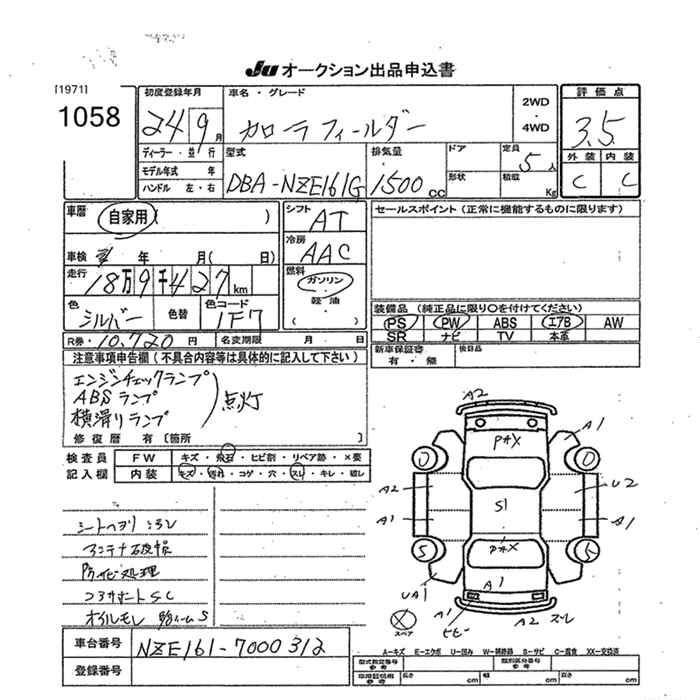 JU オークション出品申込書
[1971]
1058
初度登録年月
24 9 月
車名・グレード
カローラフィールダー
2WD
・
4WD
評価点
3.5
外装 内装
C C
ディーラー・並行
モデル年式 年
ハンドル 左・右
型式
DBA-NZE161G
排気量
1500 CC
ドア
形状
定員
5 人
積載
Kg
車歴
自家用 ( )
車検 年 月 ( 日)
走行
18 万 9 千 427 km
色
シルバー
色替
色コード
1F7
シフト
AT
冷房
AAC
燃料
ガソリン
軽油
( )
セールスポイント (正常に機能するものに限ります)
装備品 (純正品に限り○を付けてください)
PS PW ABS エアB AW
SR ナビ TV 本革
R券 10,720 円
名変期限 月 日
新車保証書
有・無
後日品
注意事項申告欄 (不具合内容等は具体的に記入して下さい)
エンジンチェックランプ
ABSランプ
横滑りランプ
点灯
修復歴 有 [箇所 ]
検査員
記入欄
FW キズ・飛石・ヒビ割・リペア跡・×要
内装 キズ・汚れ・コゲ・穴・スレ・キレ・破レ
シートヘタリ
アンテナ破損
防サビ処理
コアサポートSC
オイルモレ
A2
A1
PAX
A2
U2
S1
A1
S1
PAX
UA1
A1
A1
A2 スレ
ヒビ
スペア
A-キズ E-エクボ U-凹み W-補修跡 S-サビ C-腐食 XX-交換済
車台番号 NZE161-7000312
登録番号
型式指定番号
参考
類別区分番号
参考
車検証記載
参考
長さ cm 幅 cm 高さ cm